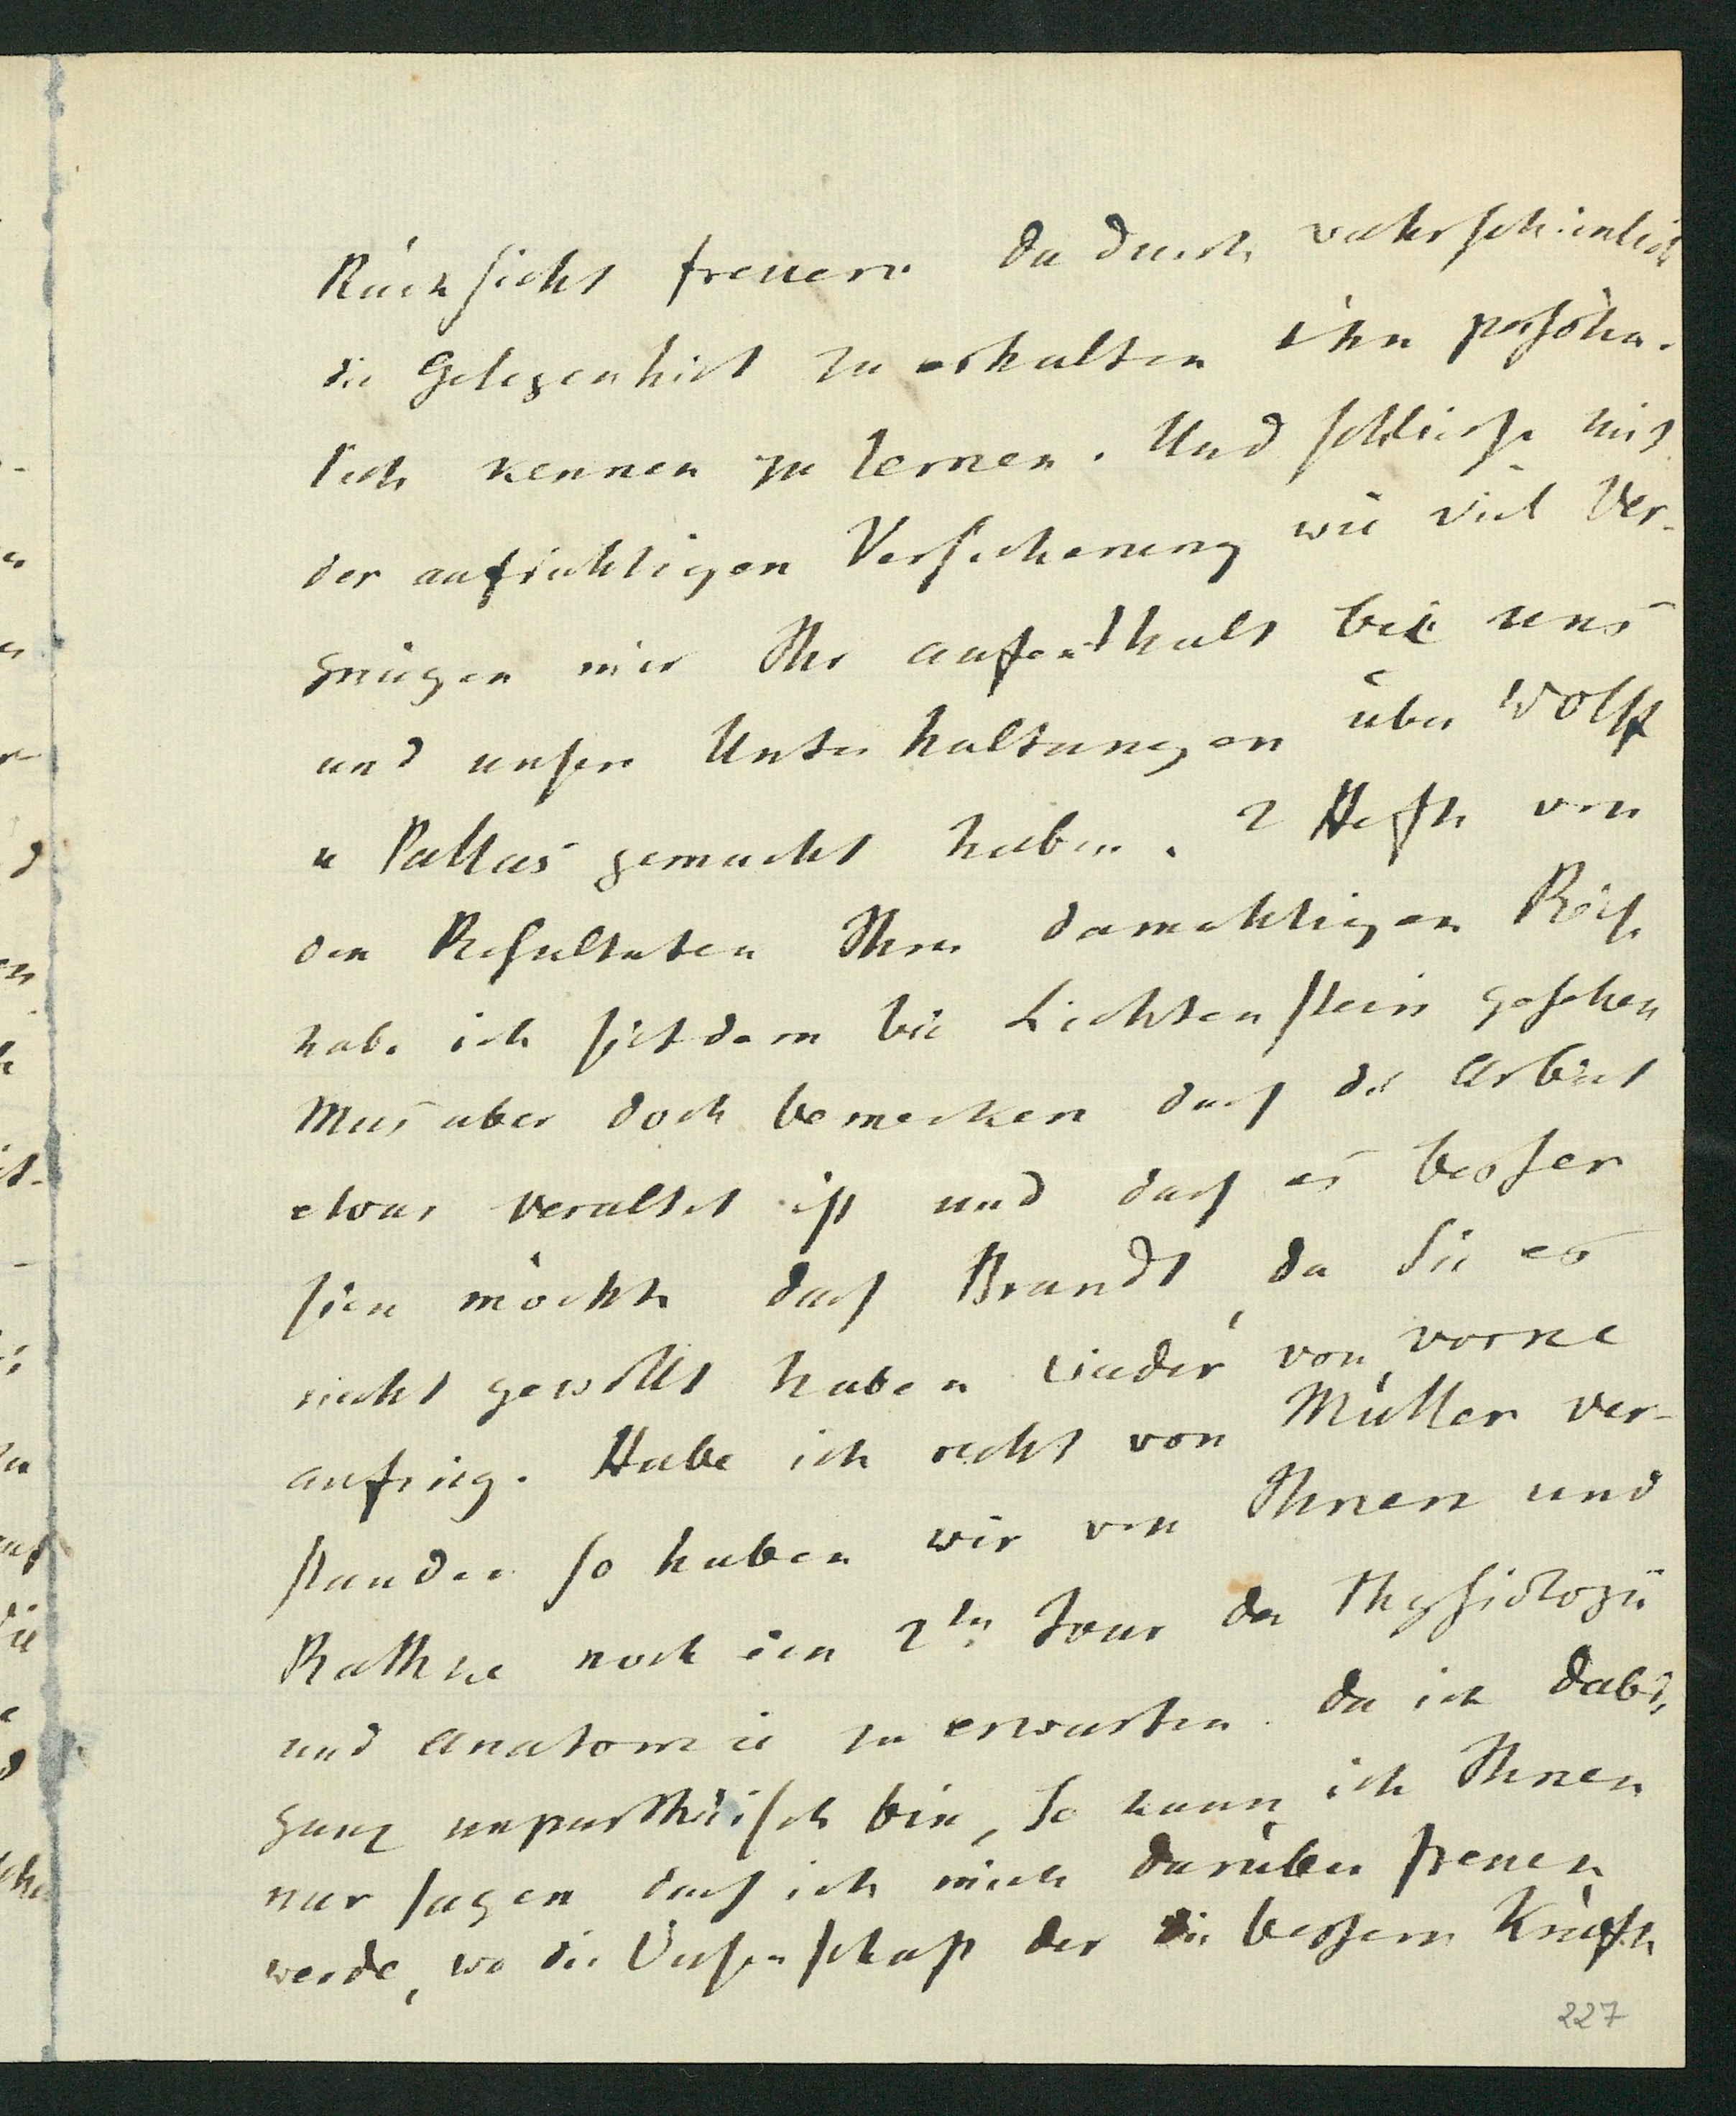 Rücksicht freuen dadurch wahrscheinlich
die Gelegenheit zu erhalten ihn persön-
lich kennen zu lernen. Und schliesse mit
der aufrichtigen Versicherung wie viel Ver-
gnügen mir Ihr aufenthalt bei uns
und unsere Unterhaltungen über Wolff
u Pallas gemacht haben. 2 Hefte von
den Resultaten Ihrer damahligen Reise
habe ich seitdem bei Lichtenstein gesehen
Mus aber doch bemerken dass die Arbeit
etwas veraltet ist und dass es besser
sein möchte dass Brandt, da Sie es
nicht gewollt haben wieder von vorne
anfing. Habe ich recht von Müller ver-
standen so haben wir von Ihnen und
Rathke noch ein 2ten Tour der Physiologie
und Anatomie zu erwarten. Da ich dabei
ganz unpartheiisch bin, So kann ich Ihnen
nur sagen dass ich mich darüber freuen
werde, wo die Wissenschaft der die bessern Kräfte
227